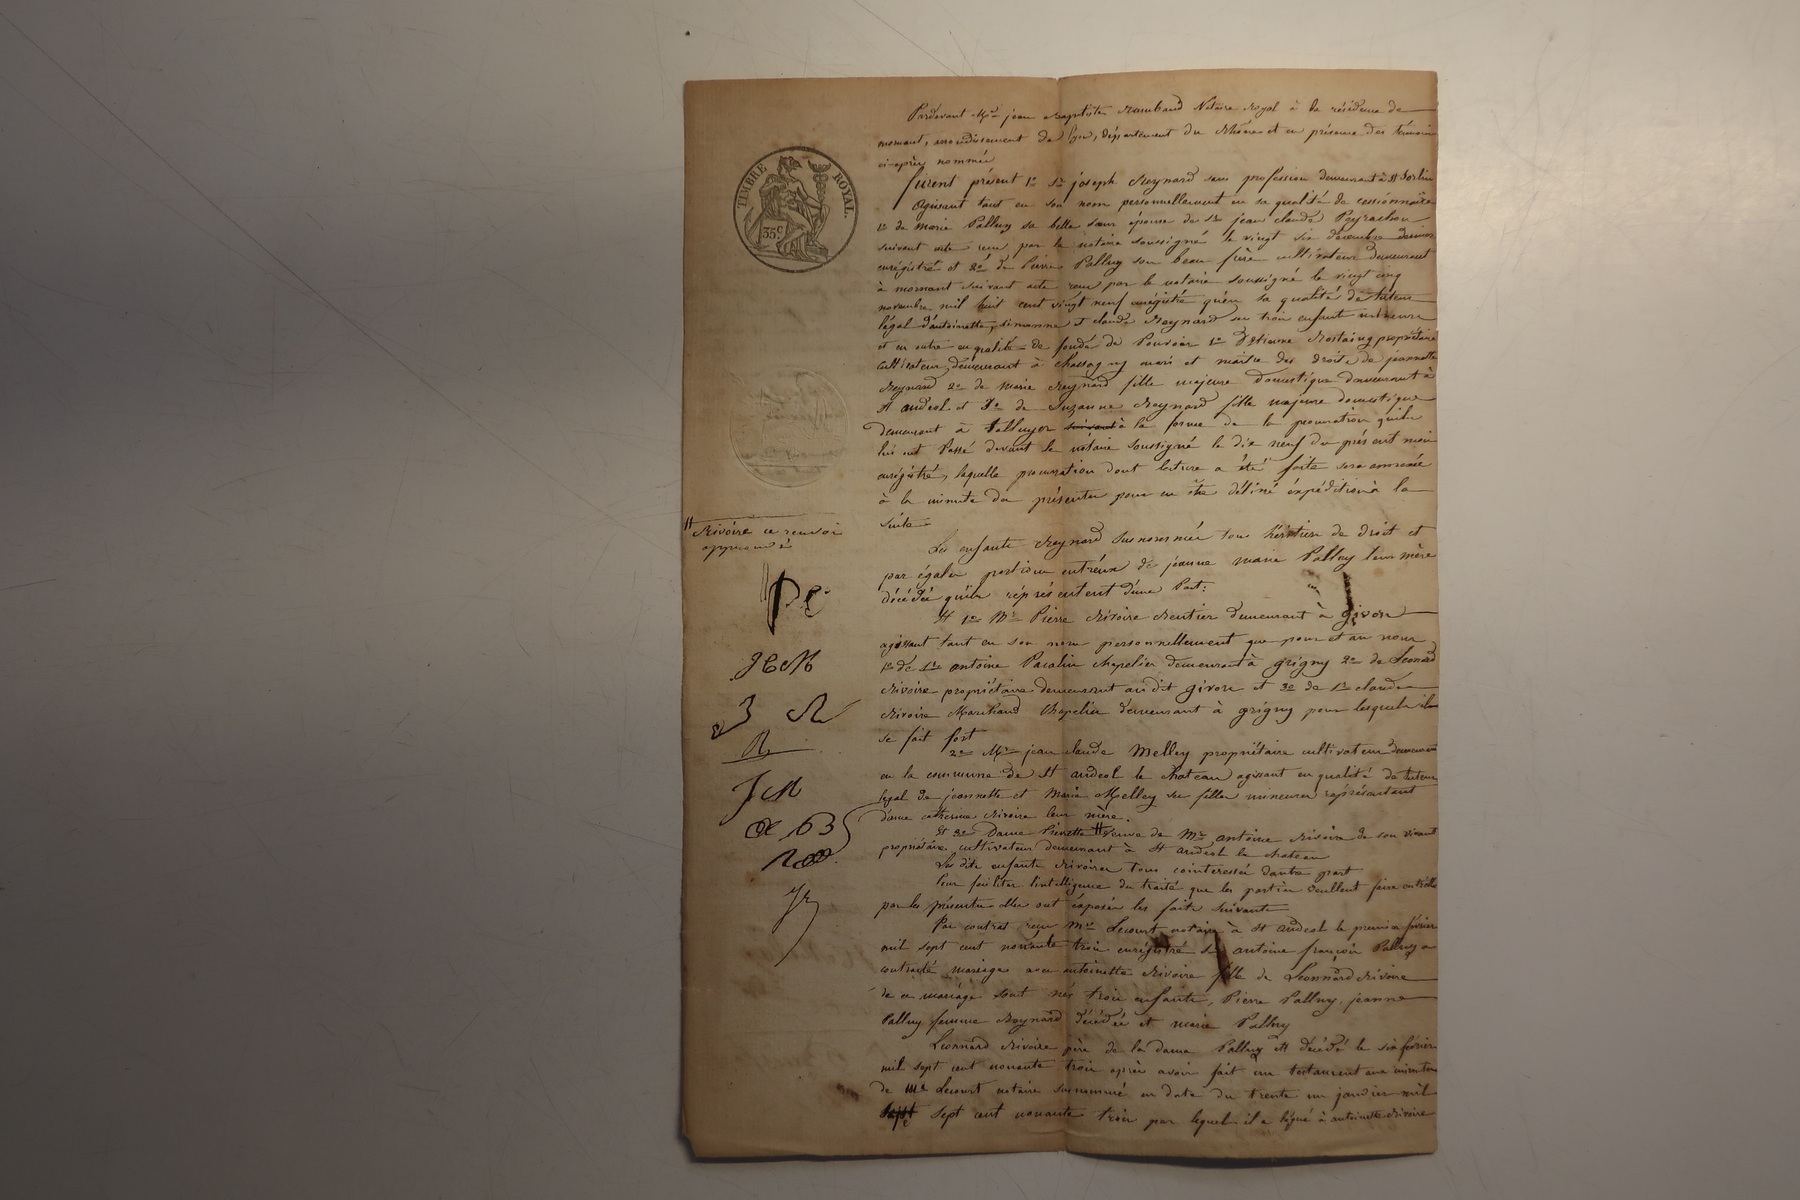 TIMBRE ROYAL.
35 c
Pardevant Me jean Baptiste Raimbaud Notaire Royal à la résidence de
mornant, arrondissement de lyon, département du Rhône et en présence des témoins
ci-après nommés
furent présent 1o Sr joseph Reynard sans profession demeurant à St Sorlin
Agissant tant en son nom personnellement en sa qualité de cessionnaire
1o de Marie Palluy sa belle sœur épouse de Sr jean claude Peyrachon
suivant acte reçu par le notaire soussigné le vingt six décembre dernier
enrégistré et 2o de Pierre Palluy son beau frère cultivateur demeurant
à mornant suivant acte reçu par le notaire soussigné le vingt cinq
novembre mil huit cent vingt neuf enrégistré qu'en sa qualité de tuteur
légal d'antoinette, simonne et claude Reynard ses trois enfants mineurs
et en outre en qualité de fondé de Pouvoir 1o D'étienne Rostaing propriétaire
cultivateur demeurant à Chassagny mari et maitre des droits de jeannette
Reynard 2o de Marie Reynard fille majeure domestique demeurant à
St andeol et 3o de Suzanne Reynard fille majeure domestique
demeurant à Talluyer suivant à la forme de la procuration qu'ils
lui ont Passé devant le notaire soussigné le dix neuf du présent mois
enrégistré, laquelle procuration dont lecture a été faite sera annexée
à la minute des présentes pour en être délivré éxpédition à la
suite
Les enfants Reynard susnommés tous héritiers de droit et
par égales portions entr'eux de jeanne marie Palluy leur mère
décédée qu'ils réprésentent d'une Part;
Et 1o Mr Pierre Rivoire Rentier demeurant à givors
agissant tant en son nom personnellement que pour et au nom
1o de Sr antoine Pacalin chapelier demeurant à grigny 2o de Leonard
Rivoire propriétaire demeurant au dit givors et 3o de Sr claude
Rivoire Marchand Chapelier demeurant à grigny pour lesquels il
se fait fort
2o Mr jean claude Melley propriétaire cultivateur demeurant
en la commune de St andeol le chateau agissant en qualité de tuteur
légal de jeannette et Marie Melley ses filles mineures représentant
dame catherine Rivoire leur mère.
Et 3o Dame Pierrette # veuve de Mr antoine Rivoire de son vivant
propriétaire cultivateur demeurant à St andeol le chateau
Les dits enfants Rivoires tous cointeressés d'autre part
Pour faciliter l'intelligence du traité que les parties veullent faire entr'elles
par les présentes elles ont éxposés les faits suivants
Par contrat reçu Me Lecourt notaire à St andeol le premier février
mil sept cent nonante trois enrégistré Sr antoine françois Palluy a
contracté mariage avec antoinette Rivoire fille de Leonnard Rivoire
de ce mariage sont nés trois enfants, Pierre Palluy, jeanne
Palluy femme Reynard décédée et marie Palluy
Leonnard Rivoire père de la dame Palluy est décédé le six février
mil sept cent nonante trois après avoir fait un testament aux minutes
de Me Lecourt notaire susnommé en date du trente un janvier mil
sept sept cent nonante trois par lequel il a légué à antoinette Rivoire
# Rivoire ce renvoi
approuvé
JCM
R
R
JM